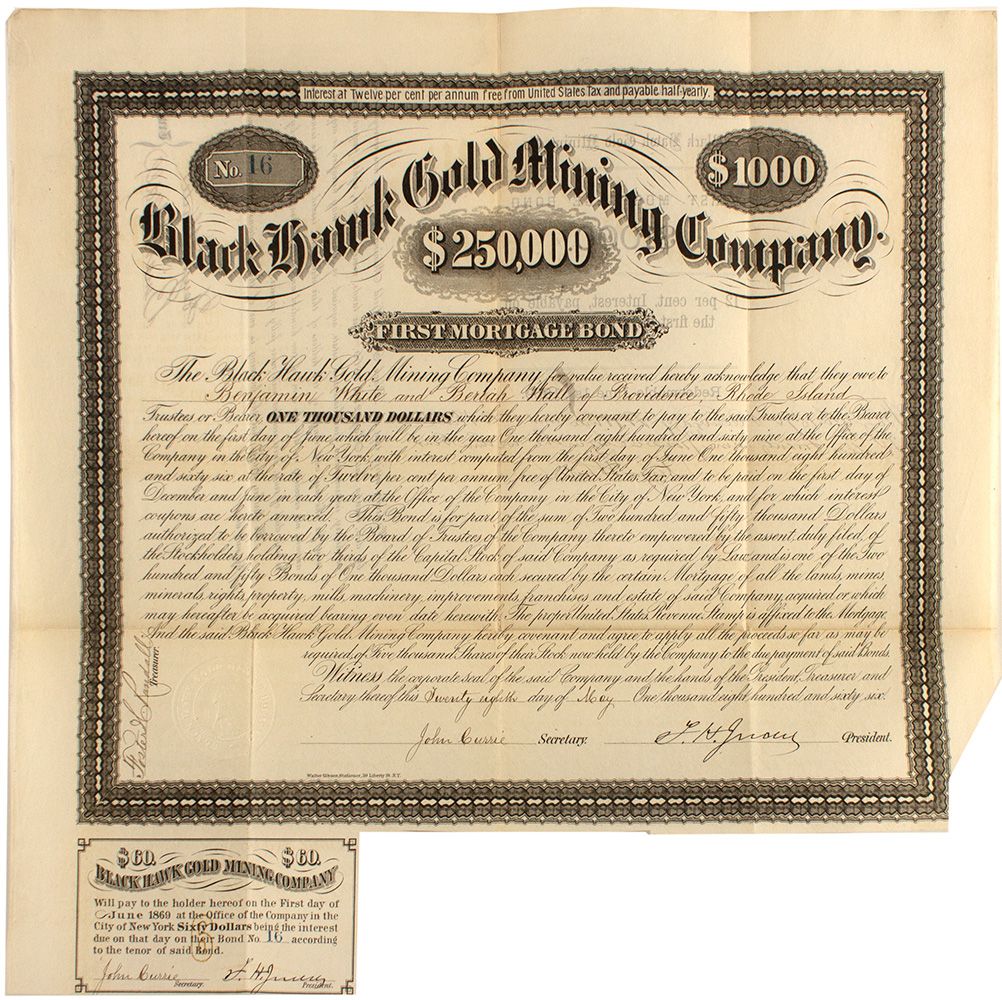 Interest at Twelve per cent per annum free from United States Tax and payable half-yearly.
No. 16
$1000
Black Hawk Gold Mining Company.
$250,000
FIRST MORTGAGE BOND
The Black Hawk Gold Mining Company for value received hereby acknowledge that they owe to
Benjamin White and Beriah Wall of Providence, Rhode Island
Trustees or Bearer ONE THOUSAND DOLLARS which they hereby covenant to pay to the said Trustees or to the Bearer
hereof on the first day of June which will be in the year One thousand eight hundred and sixty nine at the Office of the
Company in the City of New York, with interest computed from the first day of June One thousand eight hundred
and sixty six at the rate of Twelve per cent per annum, free of United States Tax, and to be paid on the first day of
December and June in each year at the Office of the Company in the City of New York, and for which interest
coupons are hereto annexed. This Bond is for part of the sum of Two hundred and fifty thousand Dollars
authorized to be borrowed by the Board of Trustees of the Company thereto empowered by the assent duly filed, of
the Stockholders holding two thirds of the Capital Stock of said Company as required by Law, and is one of the Two
hundred and fifty Bonds of One thousand Dollars each secured by the certain Mortgage of all the lands, mines,
minerals, rights, property, mills, machinery, improvements, franchises and estate of said Company, acquired or which
may hereafter be acquired bearing even date herewith. The proper United States Revenue Stamp is affixed to the Mortgage.
And the said Black Hawk Gold Mining Company hereby covenant and agree to apply all the proceeds so far as may be
required, of Five thousand Shares of their Stock now held by the Company to the due payment of said Bonds.
Witness the corporate seal of the said Company and the hands of the President, Treasurer and
Secretary thereof this Twenty eighth day of May One thousand eight hundred and sixty six.
Treasurer.
John Currie Secretary. President.
Walter Gibson, Stationer, 59 Liberty St. N.Y.
$60. $60.
BLACK HAWK GOLD MINING COMPANY
Will pay to the holder hereof on the First day of
June 1869 at the Office of the Company in the
City of New York Sixty Dollars being the interest
due on that day on their Bond No. 16 according
to the tenor of said Bond.
6
John Currie
Secretary. President.